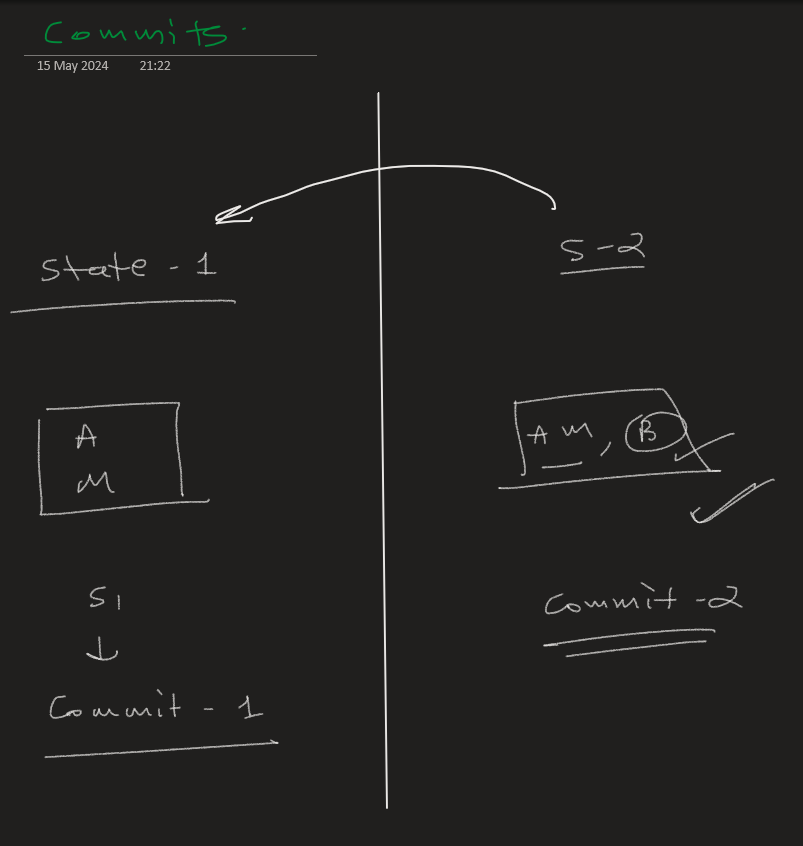 Commits.
15 May 2024 21:22
State - 1
A
M
S1
Commit - 1
S-2
A M, B
Commit -2